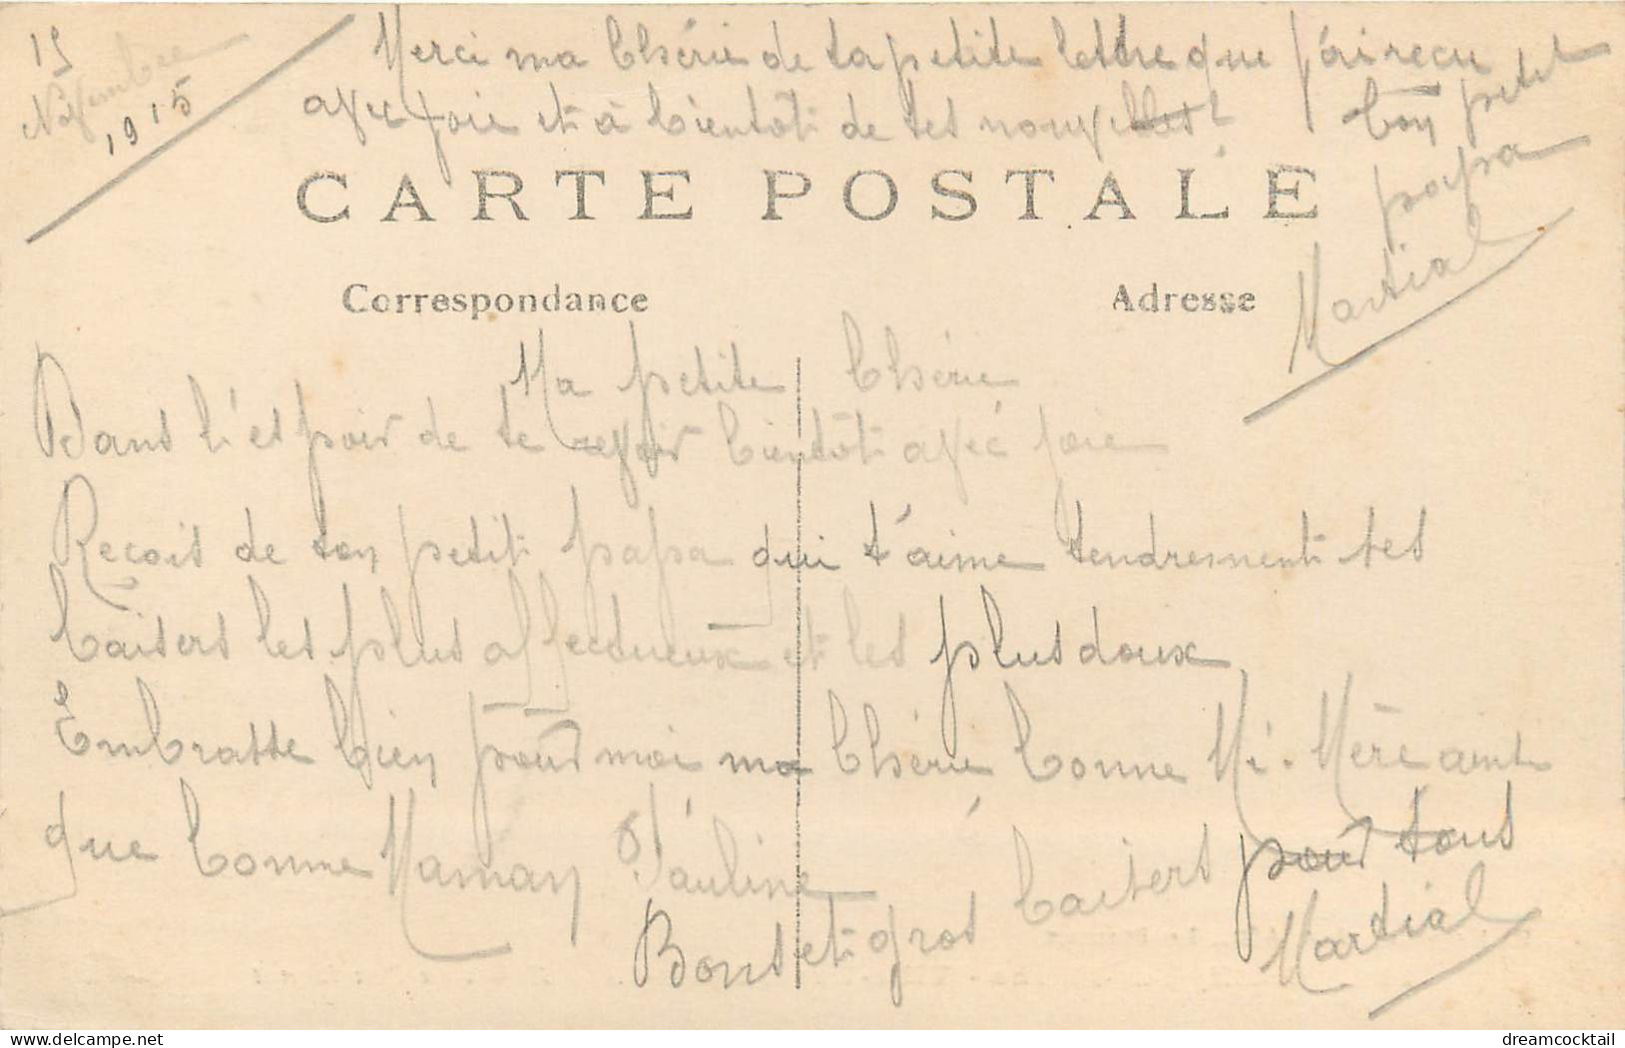 15
Novembre
1915
Merci ma Chérie de ta petite lettre que j'ai reçu
avec joie et à bientôt de tes nouvelles
ton petit
papa
Martial
CARTE POSTALE
Correspondance
Adresse
Ma petite Chérie
Dans l'éspoir de te revoir bientôt avec joie
Reçois de ton petit papa qui t'aime tendrement tes
baisers les plus affectueux et les plus doux
Embrasse bien pour moi ma Chérie bonne Mi-Mère
que bonne Maman Pauline
Bons et gros baisers pour tous
Martial
dreamcocktail